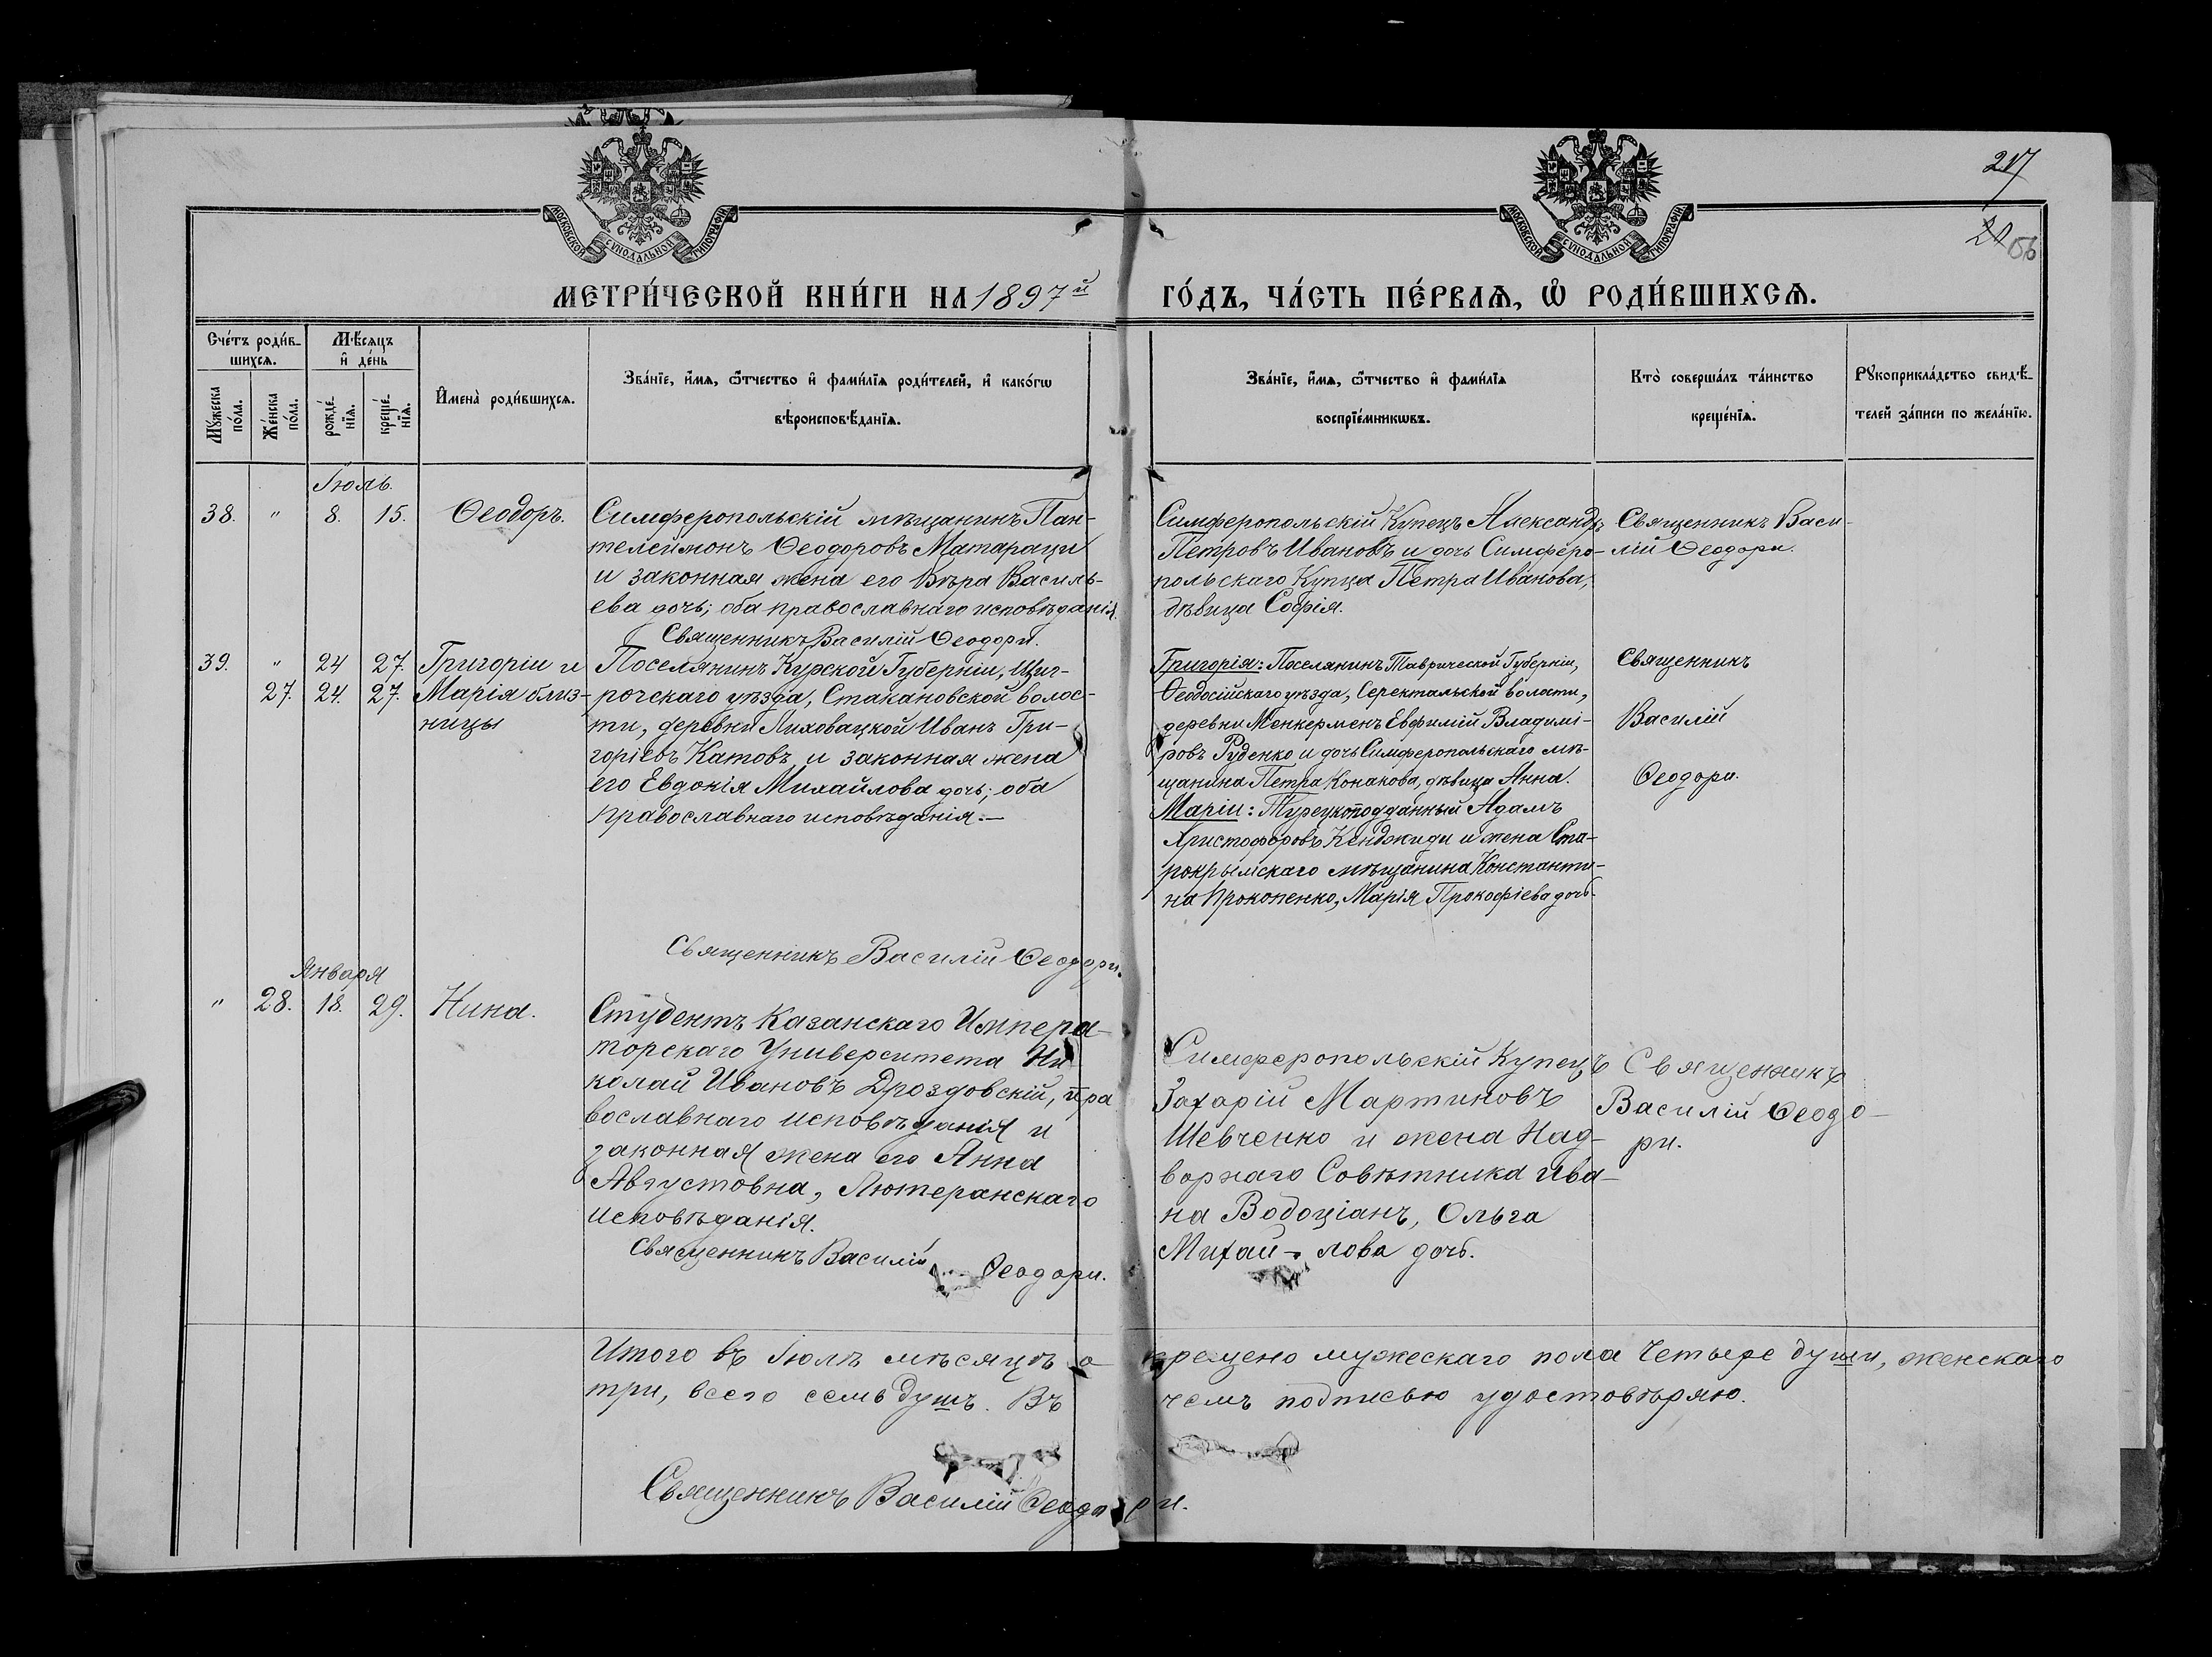 МОСКОВСКОЙ СУНОДАЛЬНОЙ ТИПОГРАФІИ
МОСКОВСКОЙ СУНОДАЛЬНОЙ ТИПОГРАФІИ
217
56
МЕТРИ́ЧЕСКОЙ КНИ́ГИ НА 1897й
ГО́ДЪ, ЧА́СТЬ ПЕ́РВАѦ, Ѡ РОДИ́ВШИХСѦ.
Сче́тъ роди́в-
шихсѧ.
Мѣ́сѧцъ
и де́нь
Мꙋ́жеска
по́ла.
Же́нска
по́ла.
рожде́-
нїѧ.
креще́-
нїѧ.
Имена̀ роди́вшихсѧ.
Зва́нїе, и́мѧ, ѻ́тчество и фами́лїѧ роди́телей, и како́гѡ
вѣроисповѣ́данїѧ.
Зва́нїе, и́мѧ, ѻ́тчество и фами́лїѧ
воспрїе́мникѡвъ.
Кто̀ соверша́лъ та́инство
креще́нїѧ.
Рꙋкоприкла́дство свидѣ́-
телей за́писи по жела́нїю.
Іюль.
38. " 8. 15. Ѳеодоръ.
Симферопольскій мѣщанинъ Пан-
телеимонъ Ѳеодоровъ Матараци
и законная жена его Вѣра Василь-
ева дочь; оба православнаго исповѣданія.
Священникъ Василій Ѳеодори.
Симферопольскій Купецъ Александръ
Петровъ Ивановъ и дочь Симферо-
польскаго Купца Петра Иванова,
дѣвица Софія.
Священникъ Васи-
лій Ѳеодори.
39. " 24 27. Григорій и
27. 24. 27. Марія близ-
ницы
Поселянинъ Курской Губерніи, Щиг-
рочскаго уѣзда, Стакановской волос-
ти, деревни Лиховацкой Иванъ Гри-
горіевъ Катовъ и законная жена
его Евдокія Михайлова дочь; оба
православнаго исповѣданія.—
Священникъ Василій Ѳеодори.
Григорія: Поселянинъ Таврической Губерніи,
Ѳеодосійскаго уѣзда, Серектальской волости,
деревни Менкерменъ Евфимій Владимі-
ровъ Руденко и дочь Симферопольскаго мѣ-
щанина Петра Конакова, дѣвица Анна.
Маріи: Турецкоподданный Адамъ
Христофоровъ Кенджиди и жена Ста-
рокрымскаго мѣщанина Константи-
на Прокопенко, Марія Прокофіева дочь.
Священникъ
Василій
Ѳеодори.
Января
" 28. 18. 29. Нина.
Студентъ Казанскаго Импера-
торскаго Университета Ни
колай Ивановъ Дроздовскій, пра
вославнаго исповѣданія и
законная жена его Анна
Августовна, Лютеранскаго
исповѣданія.
Священникъ Василій Ѳеодори.
Симферопольскій Купецъ
Захарій Мартиновъ
Шевченко и жена Над-
ворнаго Совѣтника Ива-
на Водоціанъ, Ольга
Михай- лова дочь.
Священникъ
Василій Ѳеодо-
ри.
Итого въ Іюлѣ мѣсяцѣ о крещено мужескаго пола Четыре души, женскаго
три, всего семь душъ. Въ чемъ подписью удостовѣряю.
Священникъ Василій Ѳеодори.